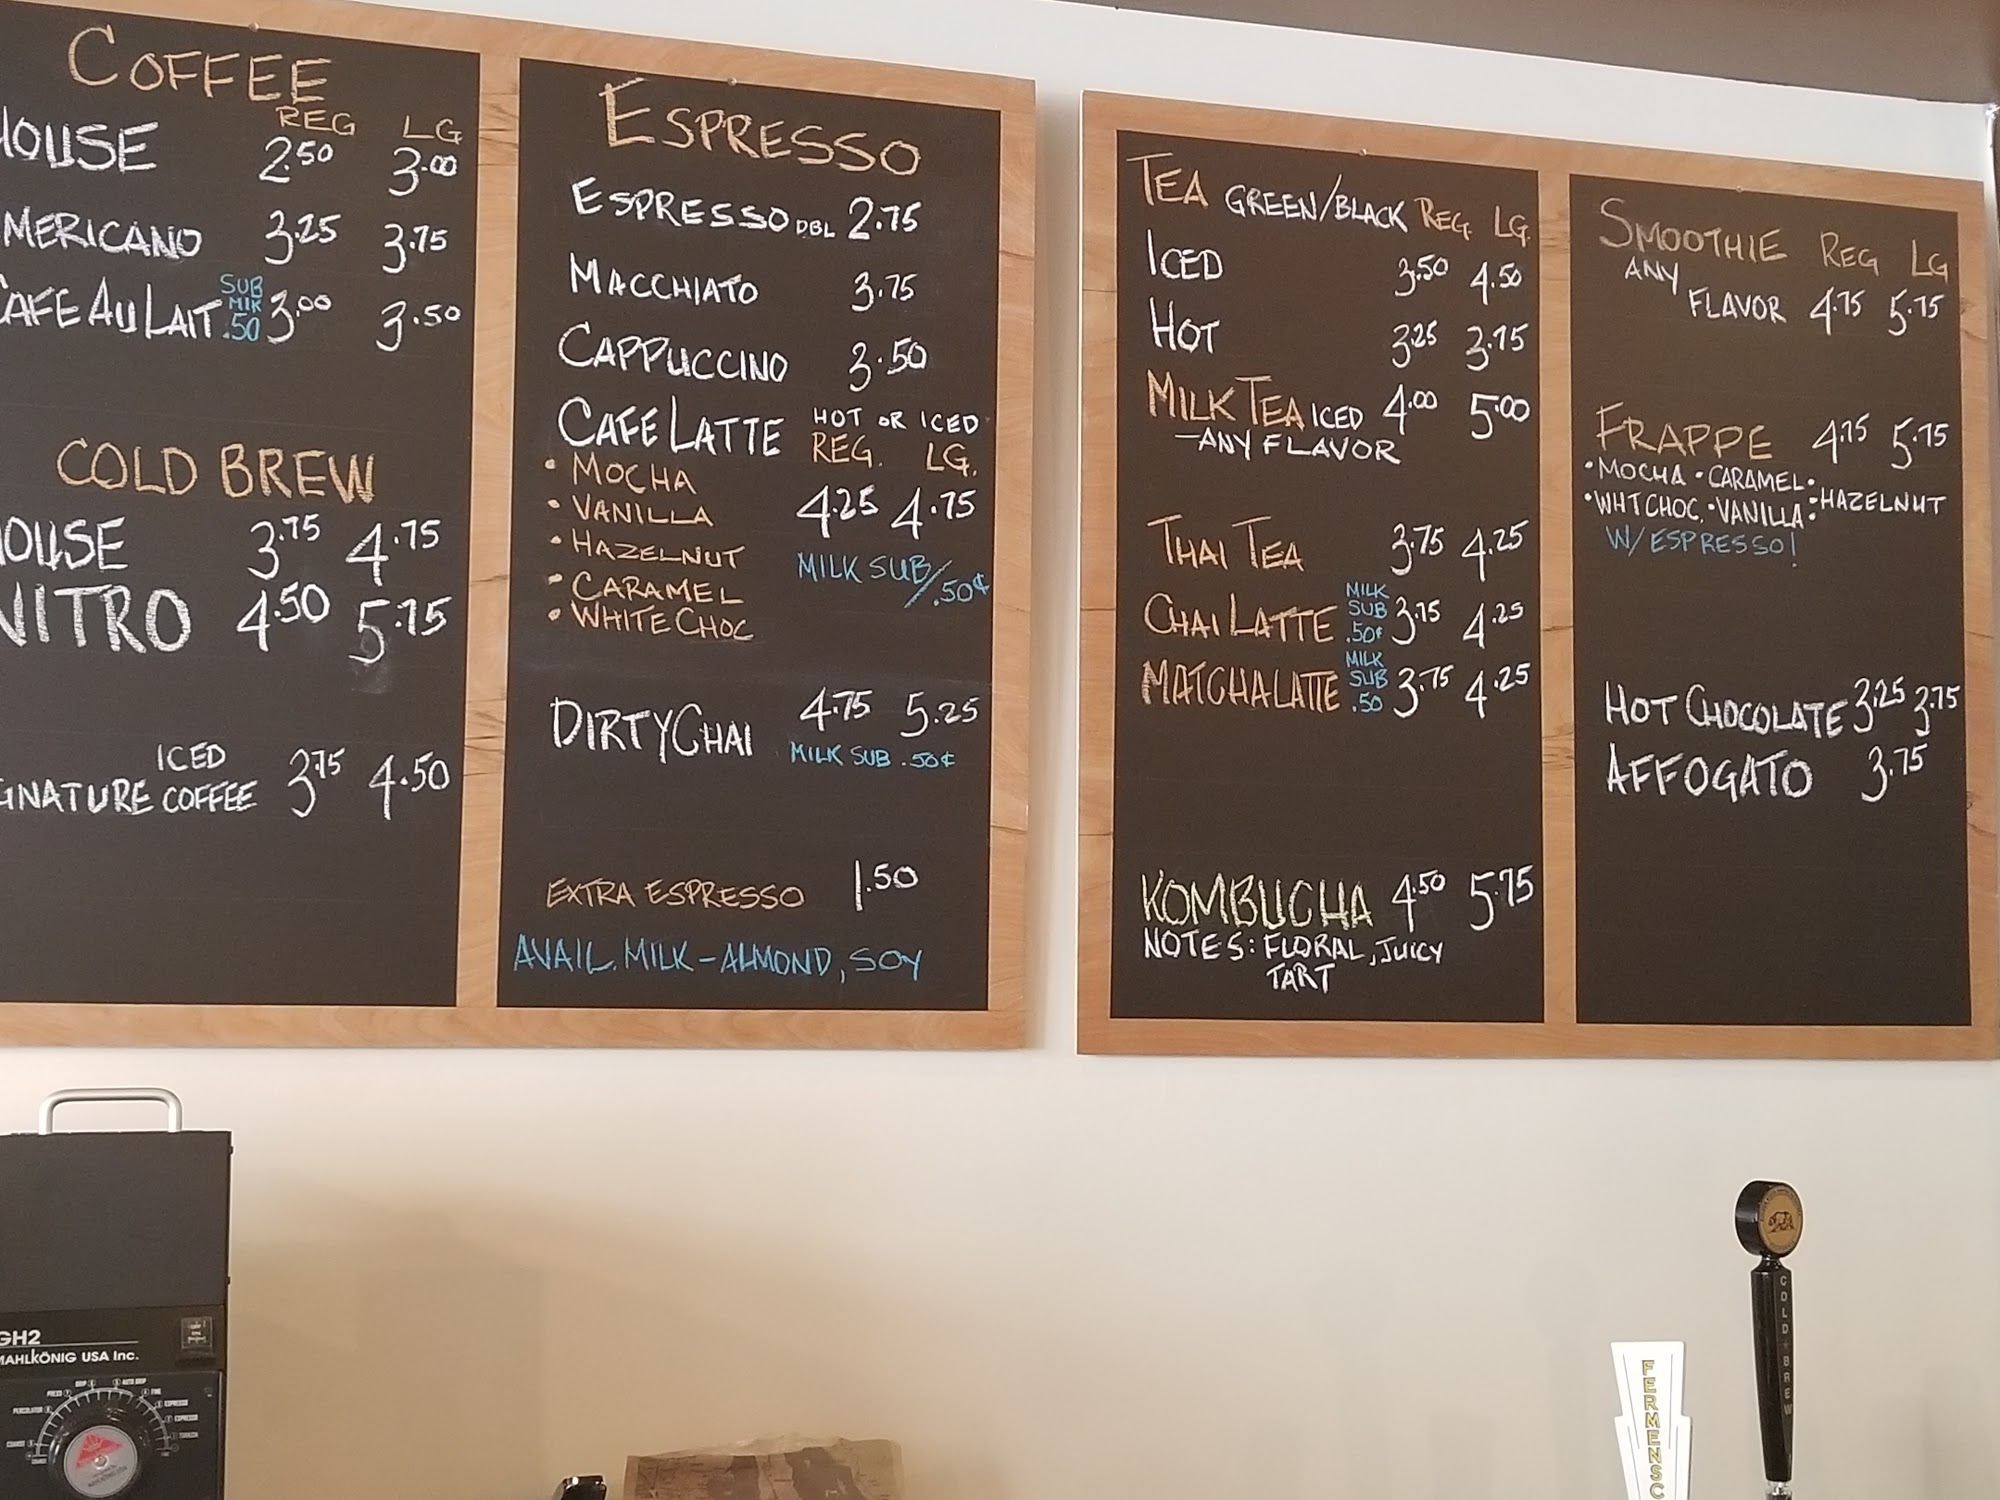 COFFEE
REG LG
HOUSE 2.50 3.00
AMERICANO 3.25 3.75
CAFE AU LAIT SUB MIK .50 3.00 3.50
COLD BREW
HOUSE 3.75 4.75
NITRO 4.50 5.75
ICED
SIGNATURE COFFEE 3.75 4.50
ESPRESSO
ESPRESSO DBL 2.75
MACCHIATO 3.75
CAPPUCCINO 3.50
CAFE LATTE HOT OR ICED
REG. LG.
• MOCHA
• VANILLA 4.25 4.75
• HAZELNUT
MILK SUB/.50¢
• CARAMEL
• WHITE CHOC
DIRTY CHAI 4.75 5.25
MILK SUB .50¢
EXTRA ESPRESSO 1.50
AVAIL. MILK - ALMOND, SOY
TEA GREEN/BLACK REG. LG.
ICED 3.50 4.50
HOT 3.25 3.75
MILK TEA ICED 4.00 5.00
- ANY FLAVOR
THAI TEA 3.75 4.25
CHAI LATTE MILK SUB .50¢ 3.75 4.25
MATCHA LATTE MILK SUB .50 3.75 4.25
KOMBUCHA 4.50 5.75
NOTES: FLORAL, JUICY
TART
SMOOTHIE REG LG
ANY
FLAVOR 4.75 5.75
FRAPPE 4.75 5.75
• MOCHA • CARAMEL •
• WHT CHOC. • VANILLA • HAZELNUT
W/ ESPRESSO!
HOT CHOCOLATE 3.25 3.75
AFFOGATO 3.75
GH2
MAHLKÖNIG USA Inc.
COLD BREW
FERMENSC